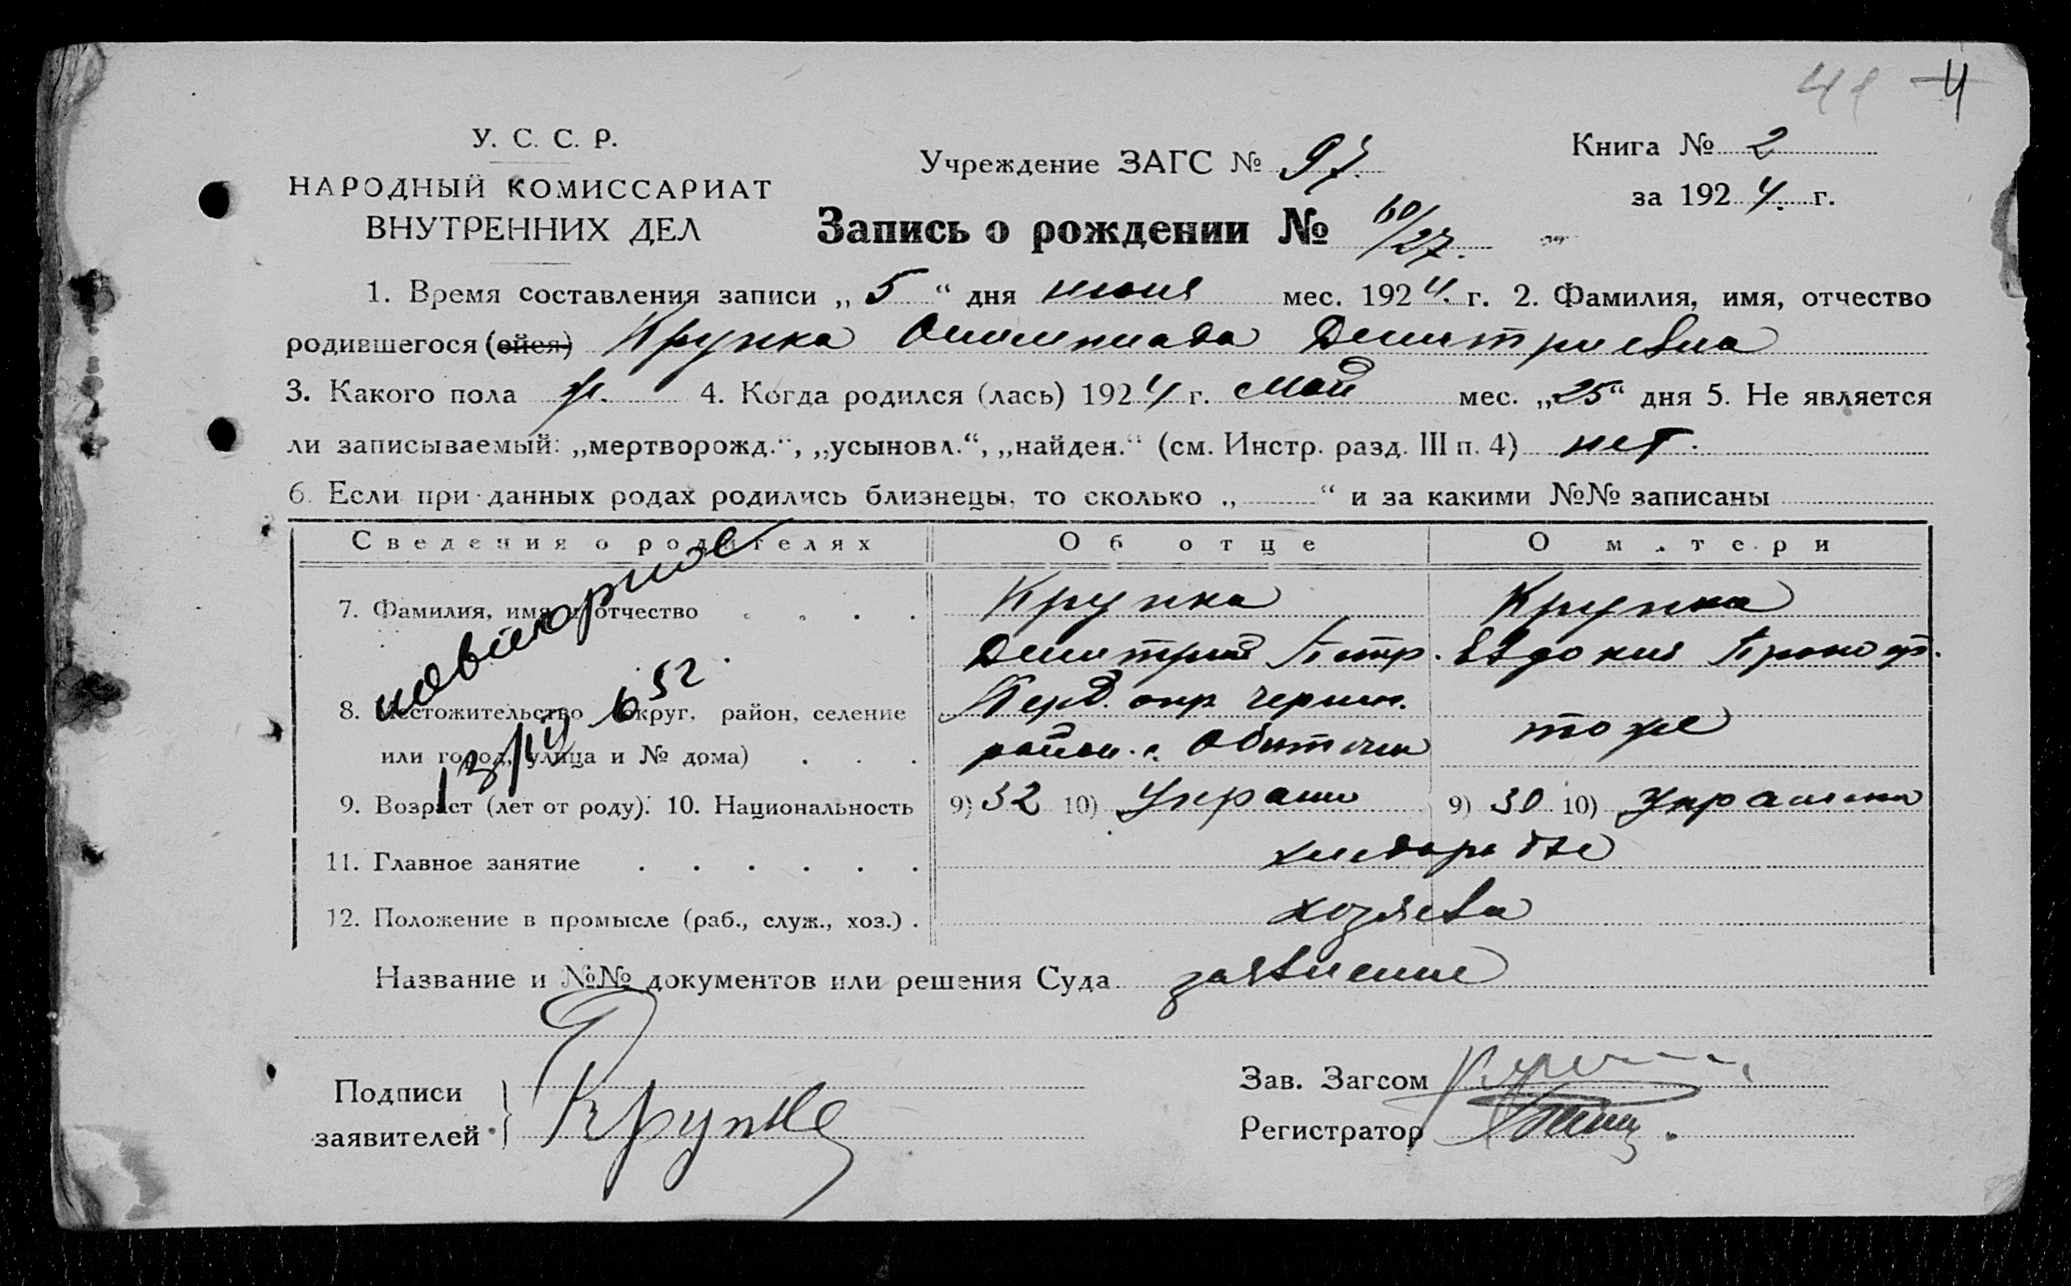 41 4
У. С. С. Р.
НАРОДНЫЙ КОМИССАРИАТ
ВНУТРЕННИХ ДЕЛ
Учреждение ЗАГС № 97.
Книга № 2
за 1924. г.
Запись о рождении № 60/27.
1. Время составления записи „ 5 “ дня июня мес. 1924. г. 2. Фамилия, имя, отчество
родившегося (ойся) Крупка Олимпиада Дмитриевна
3. Какого пола ж. 4. Когда родился (лась) 1924 г. Май мес. „25“ дня 5. Не является
ли записываемый: „мертворожд.“, „усыновл.“, „найден.“ (см. Инстр. разд. III п. 4) нет.
6. Если при данных родах родились близнецы, то сколько „ “ и за какими №№ записаны
Сведения о родителях Об отце О матери
7. Фамилия, имя и отчество Крупка Крупка
Дмитрий Петр. Евдокия Прокоф.
8. Местожительство (округ, район, селение окр. Черниг. тоже
или город, улица и № дома) район. с. Обиточн
9. Возраст (лет от роду). 10. Национальность 9) 32 10) Украин 9) 30 10) Украинка
11. Главное занятие хлебороб
12. Положение в промысле (раб., служ., хоз.) хозяева
Название и №№ документов или решения Суда заявление
Подписи
заявителей Крупка
Зав. Загсом
Регистратор